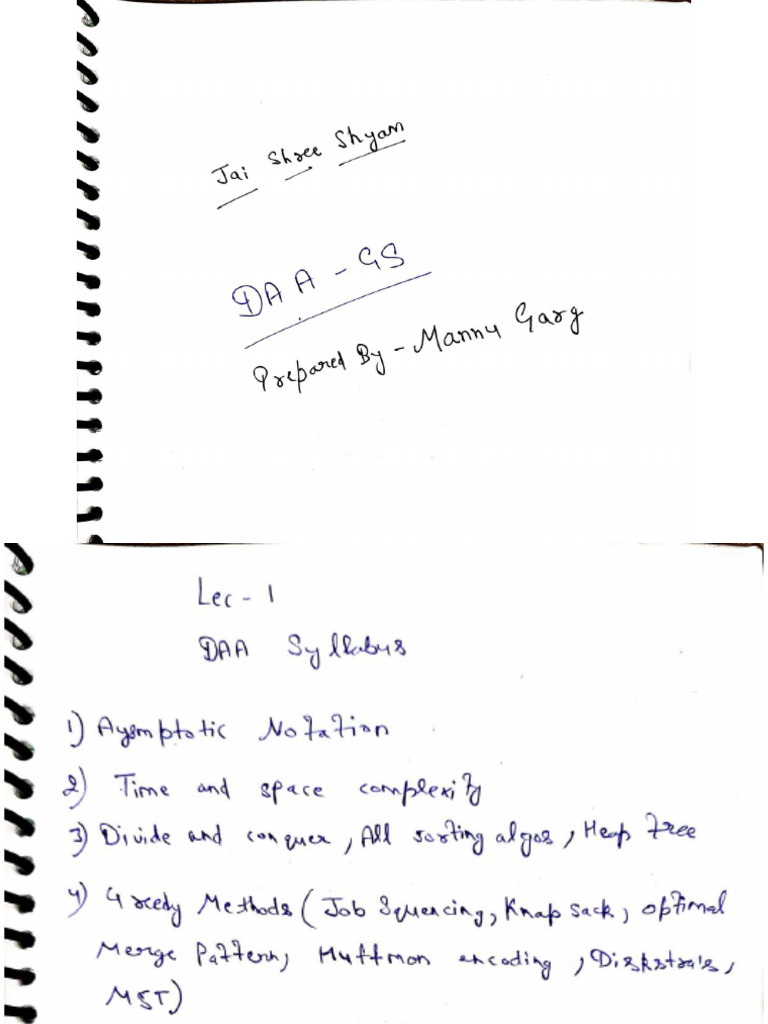 Jai Shree Shyam
DAA - GS
Prepared By - Mannu Garg
Lec - 1
DAA Syllabus
1) Aysmptotic Notation
2) Time and space complexity
3) Divide and conquer, All sorting algos, Heap Tree
4) Greedy Methods (Job Squencing, Knap sack, optimal
Merge Pattern, Huffmon encoding, Diskstra's,
MST)